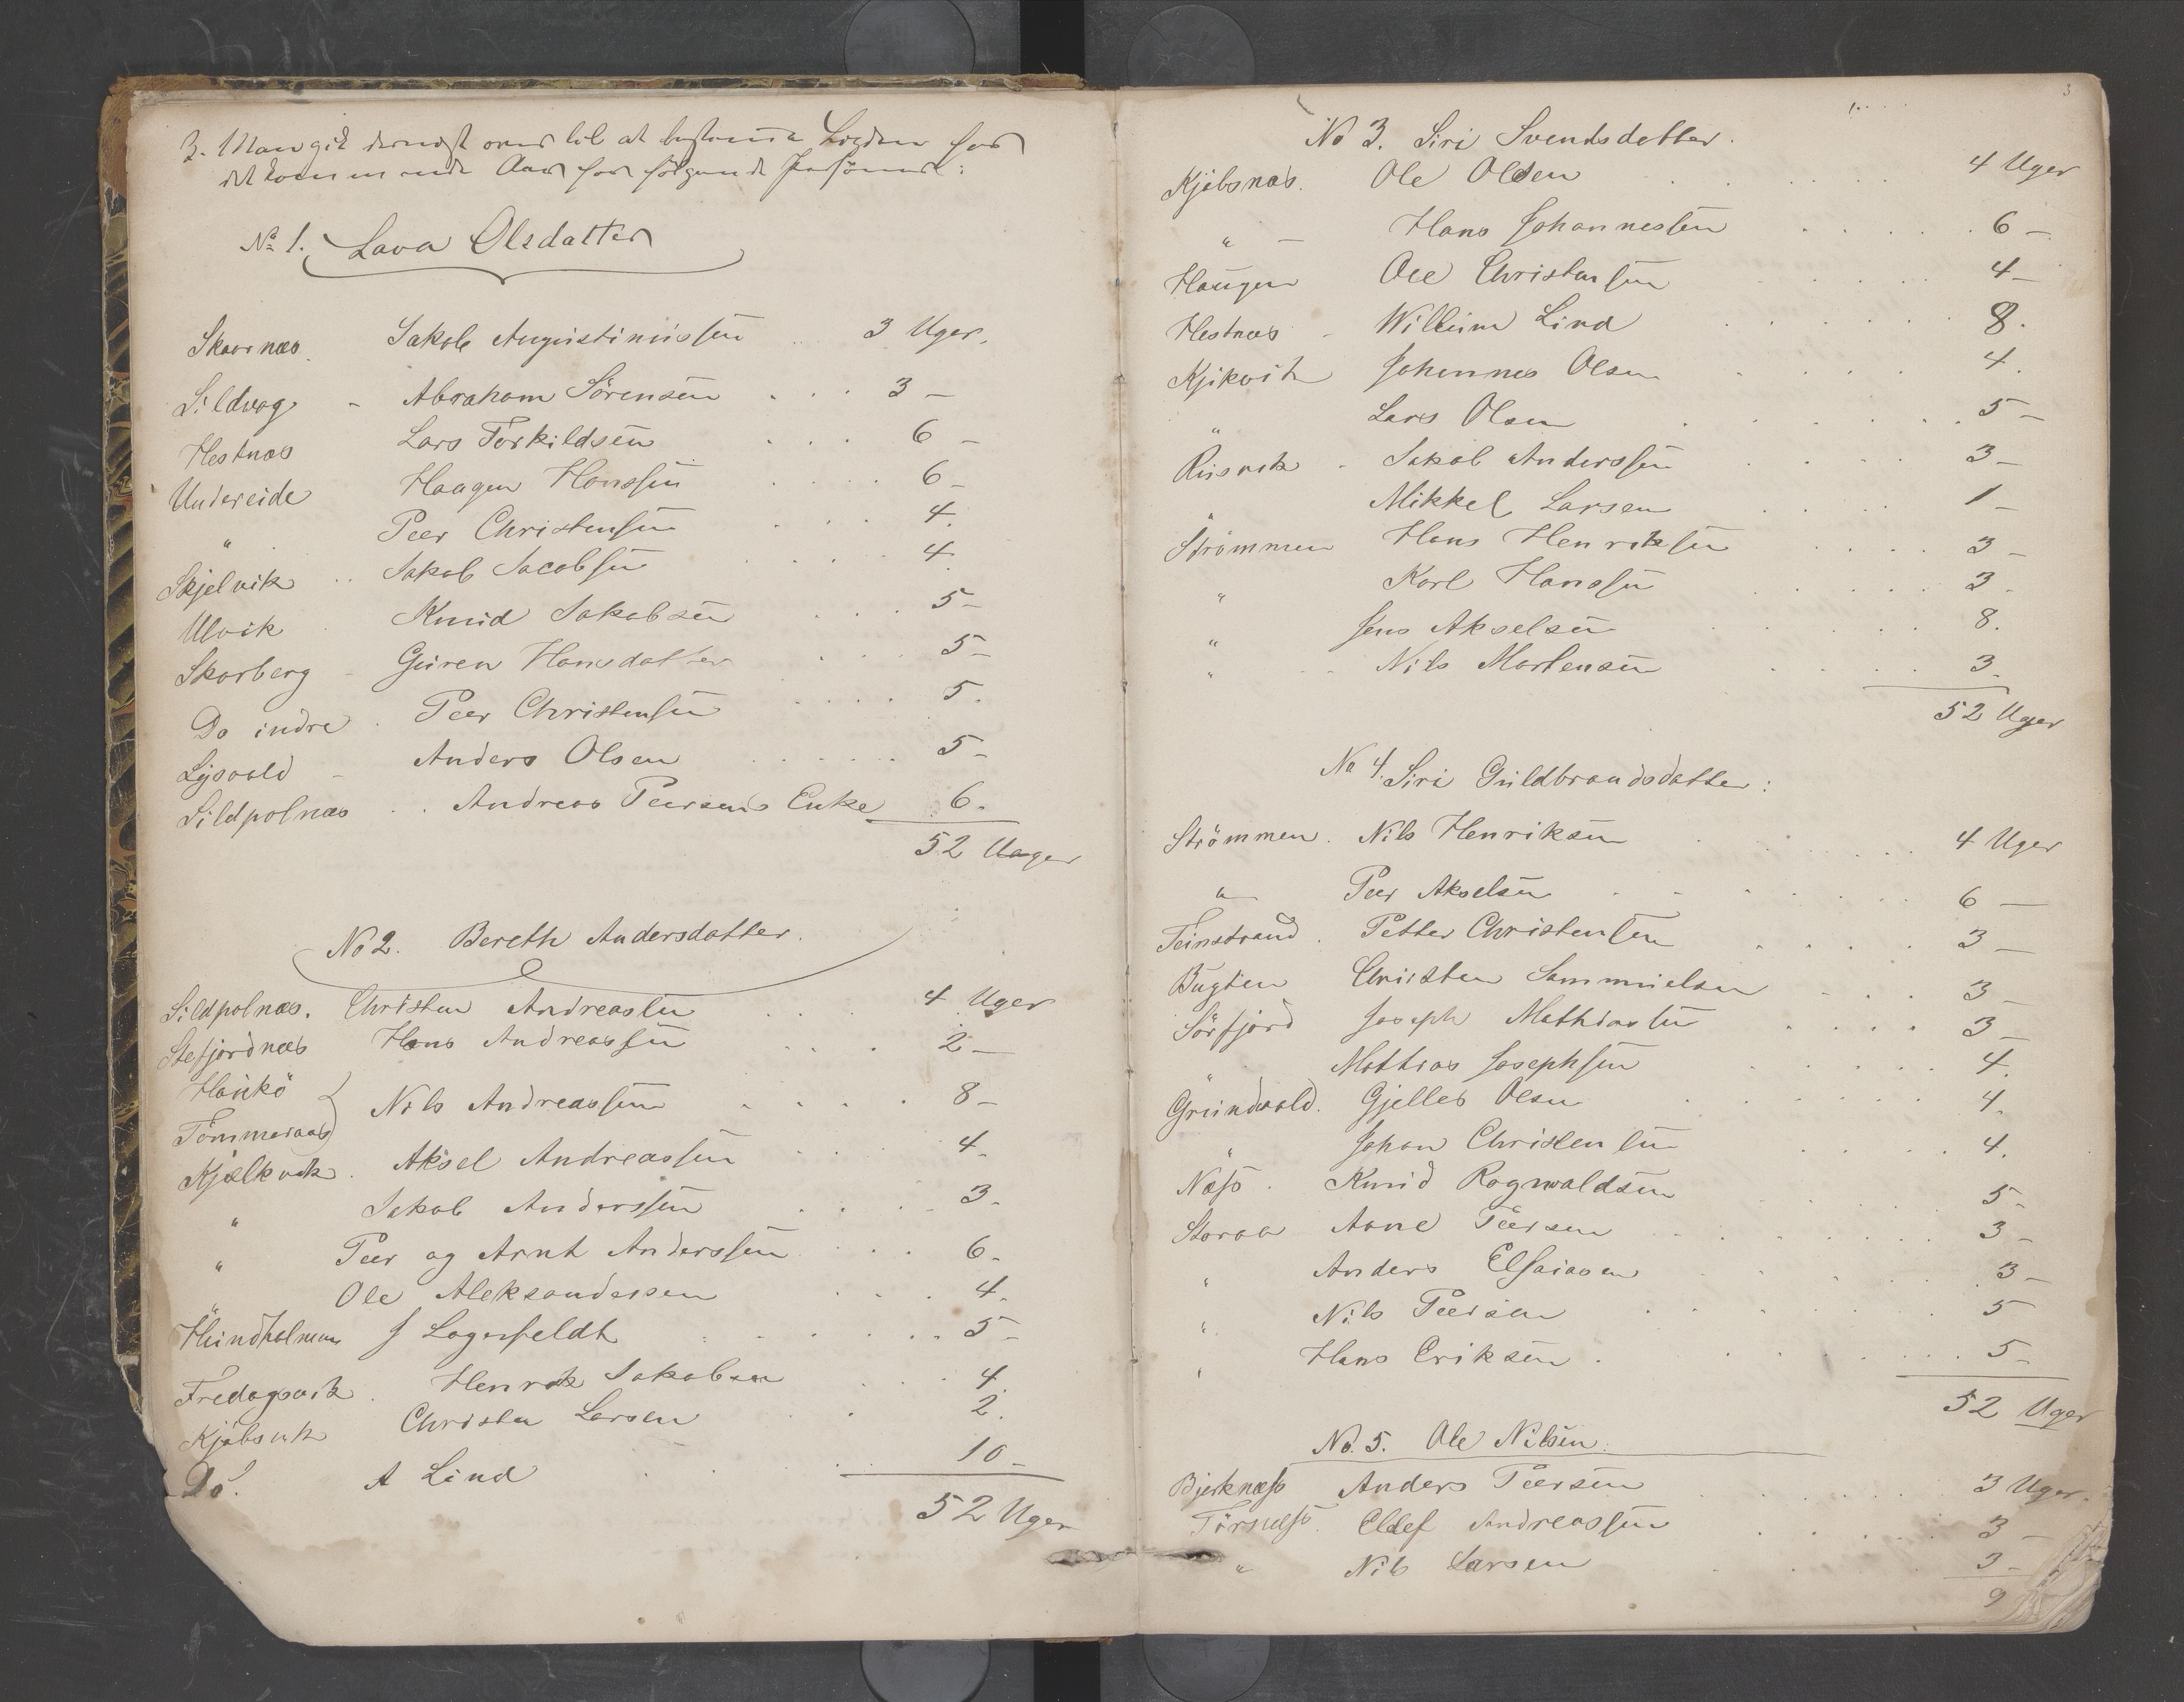 3. Man gik dernæst over til at bestemme Lægden for
det kommende Aar for følgende Personer:
No 1. Lava Olsdatter
Skarnæs Jakob Augustinussen 3 Uger.
Sildvog - Abraham Sörensen 3 -
Hestnæs Lars Torkildsen 6 -
Undereide Haagen Hanssen 6 -
" Peer Christensen 4.
Skjelvik Jakob Jacobsen 4
Ulvik Knud Jakobsen 5 -
Skarberg - Guren Hansdatter 5 -
Do indre Peer Christensen 5.
Lysvold - Anders Olsen 5 -
Sildpolnæs Andreas Peersens Enke 6.
52 Uger
No 2. Bereth Andersdatter.
Sildpolnæs. Christen Andreassen 4 Uger
Stefjordnæs Hans Andreassen 2 -
Haukö
Tömmeraas Nils Andreassen 8 -
Kjælkvik. Aksel Andreassen 4.
" Jakob Anderssen 3.
" Peer og Arnt Anderssen 6.
" Ole Aleksandersen 4.
Hundholmen J Lagerfeldt 5 -
Fredagsvik. Henrik Jakobsen 4
Kjöbsvik Christen Larsen 2.
Do. A Lind 10 -
52 Uger
3
No 3. Siri Svendsdatter.
Kjöbsnæs. Ole Olsen 4 Uger
" - Hans Johannessen 6 -
Haugen Ole Christensen 4 -
Hestnæs - Willum Lind 8.
Kjikvik Johannes Olsen 4.
" Lars Olsen 5 -
Riisvik - Jakob Anderssen 3 -
" Mikkel Larsen 1 -
Strömmen Hans Henriksen 3 -
" Karl Hanssen 3.
" Jens Akselsen 8.
" Nils Mortensen 3.
52 Uger
No 4. Siri Guldbrandsdatter:
Strömmen. Nils Henriksen 4 Uger
" Peer Akselsen 6 -
Teinstrand. Petter Christensen 3 -
Bugten Christen Sammuelsen 3 -
Sörfjord Joseph Mathiassen 3 -
" Mathias Josephsen 4.
Grundvold. Gjelleb Olsen 4.
" Johan Christensen 4.
Næsö. Knud Ragnvaldsen 5 -
Storaa Aane Peersen 3 -
" Anders Elsaiasen 3 -
" Nils Peersen 5
" Hans Eriksen. 5 -
52 Uger
No. 5. Ole Nilsen.
Bjerknæss Anders Peersen 3 Uger.
Eldef Andreassen 3 -
" Nils Larsen 3 -
9